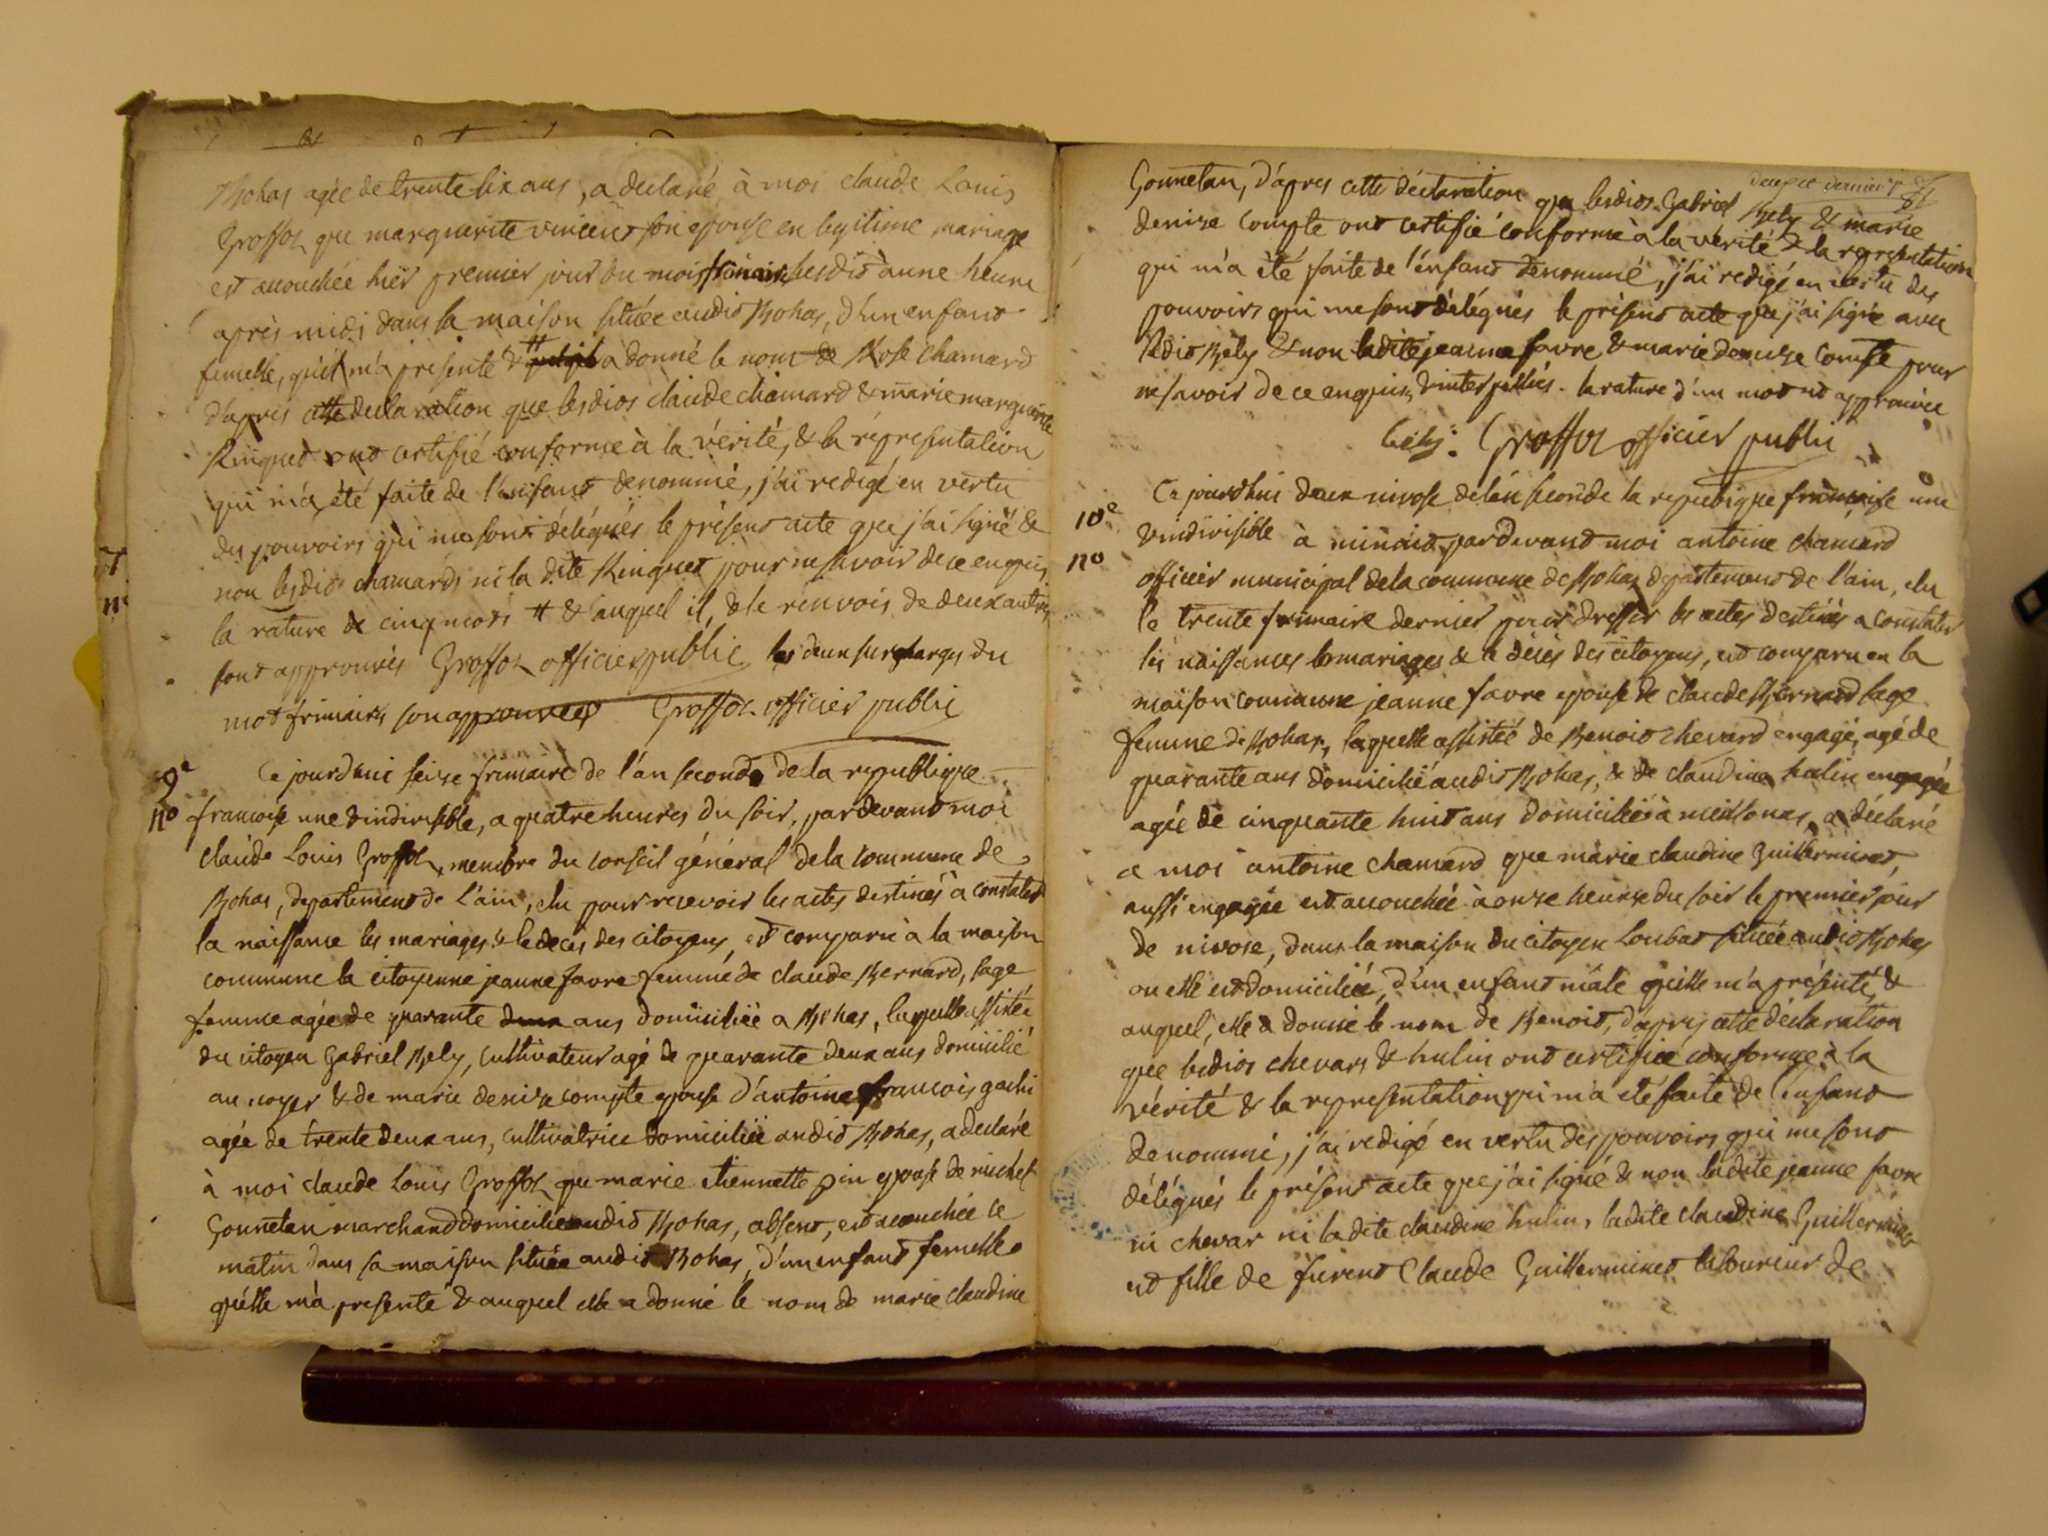 Bohas agée de trente six ans, a declaré à moi claude Louis
Grossos que marguerite vincent son epouse en legitime mariage
est accouchée hier premier jour du mois frimaire susdit à une heure
après midi dans sa maison située audit Bohas, d'un enfant
femelle, qu'il m'a presenté & # a donné le nom de Rose chamard
d'après cette declaration que lesdits claude chamard & marie marguerite
Ringuet ont certifié conforme à la vérité, & la répresentation
qui m'a été faite de l'enfant denommé, j'ai redigé en vertu
des pouvoirs qui me sont délégués le présent acte que j'ai signé &
non lesdits chamards ni la dite Ringuet pour ne savoir de ce enquis
la rature de cinq mots # & auquel il, & le renvois de deux autres
sont approuvés Grossos officier public les deux surcharges du
mot frimaire son approuvees Grossos officier public
9e
no
Ce jourdhui seize frimaire de l'an second de la republique
francoise une & indivisible, a quatre heures du soir, pardevant moi
claude Louis Grossos, membre du conseil général de la commune de
Bohas, departement de l'ain, elu pour recevoir les actes destinés à constater
la naissance les mariages & le deces des citoyens, est comparu à la maison
commune la citoyenne jeanne favre femme de claude Bernard, sage
femme agée de quarante deux ans domiciliée a Bohas, laquelle assistée
du citoyen Gabriel Bely, cultivateur agé de quarante deux ans domicilié
au noyer & de marie denize compte epouse d'antoine francois gachi
agée de trente deux ans, cultivatrice domiciliée audit Bohas, a declaré
à moi claude Louis Grossos que marie etiennette pin epouse de michel
Gonnetan marchand domicilié audit Bohas, absent, est accouchée ce
matin dans sa maison située audit Bohas, d'un enfant femelle
qu'elle m'a presenté & auquel elle a donné le nom de marie claudine
Gonnetan, d'apres cette déclaration que lesdits Gabriel Bely & marie
denize compte ont certifié conforme à la vérité & la representation
qui m'a été faite de l'enfant denommé, j'ai redigé en vertu des
pouvoirs qui me sont délégués le présent acte que j'ai signé avec
ledit Bely & non ladite jeanne favre & marie denise compte pour
ne savoir de ce enquis & interpellés. la rature d'un mot est approuvée
bely: Grossos officier public
10e
no
Ce jourdhui deux nivose de l'an seconde la republique francaise une
& indivisible à minuit, pardevant moi antoine chamard
officier municipal de la commune de Bohas departement de l'ain, elu
le trente frimaire dernier pour dresser les actes destinés a constater
les naissances les mariages & le décès des citoyens, est comparu en la
maison commune jeanne favre epouse de claude Bernard sage
femme de Bohas, laquelle assistée de Benoit chevard engagé, agé de
quarante ans domicilié audit Bohas, & de claudine hulin engagée
agée de cinquante huit ans domiciliée à meillonas, a déclaré
a moi antoine chamard que marie claudine Guillerminet,
aussi engagée est accouchée à onze heures du soir le premier jour
de nivose, dans la maison du citoyen Loubat située audit Bohas
ou elle est domiciliée, d'un enfant mâle qu'elle m'a présenté &
auquel, elle a donné le nom de Benoit, d'apres cette déclaration
que lesdits chevars & hulin ont certifié conforme à la
vérité & la representation qui m'a été faite de l'enfant
denommé, j'ai redigé en vertu des pouvoirs qui me sont
délégués le présent acte que j'ai signé & non ladite jeanne favre
ni chevar ni ladite claudine hulin, ladite claudine Guillerminet
est fille de furent Claude Guillerminet laboureur de